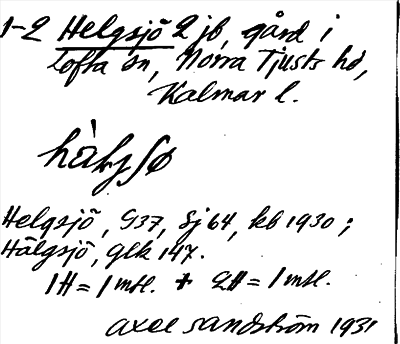 1-2 Helgsjö 2 jb, gård i
Lofta sn, Norra Tjusts hd,
Kalmar l.
Helgsjö, G37, Sj 64, kb 1930;
Hälgsjö, glk 147.
1H = 1 mtl. + 2H = 1 mtl.
Axel Sandström 1931